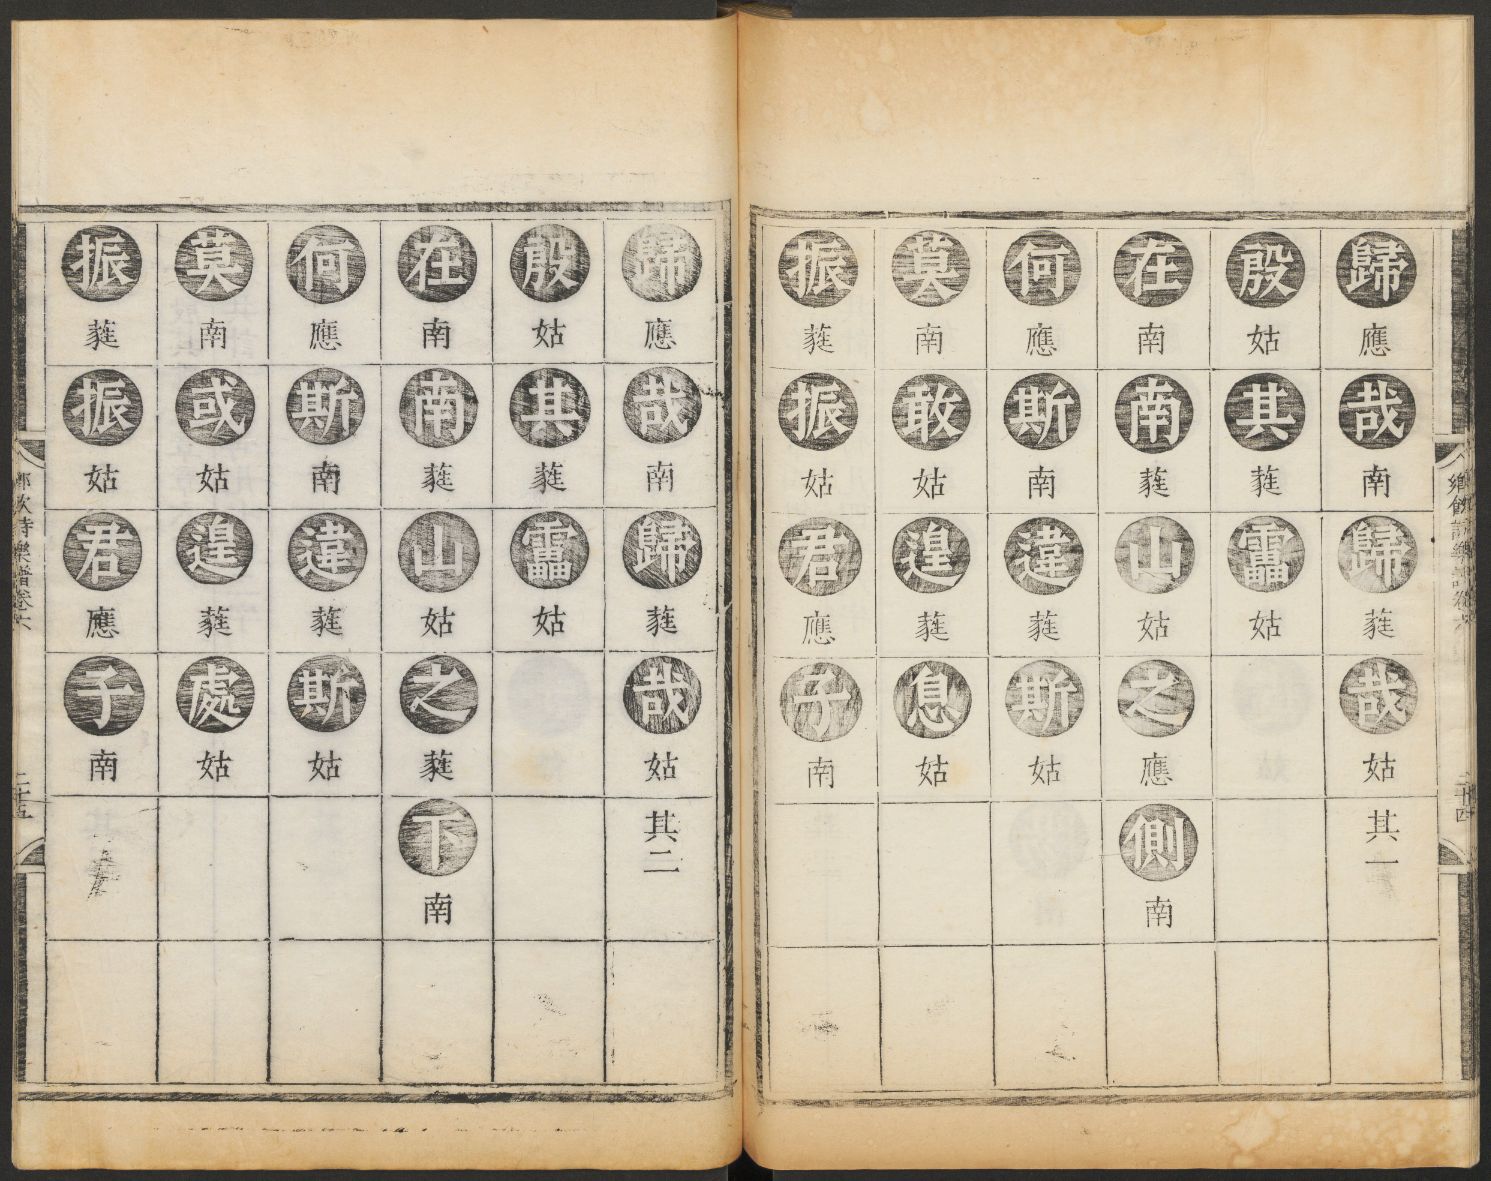 鄉飲詩樂譜卷六 二十四
歸應哉南歸蕤哉姑其一
殷姑其蕤靁姑
在南南蕤山姑之應側南
何應斯南違蕤斯姑
莫南敢姑遑蕤息姑
振蕤振姑君應子南
歸應哉南歸蕤哉姑其二
殷姑其蕤靁姑
在南南蕤山姑之蕤下南
何應斯南違蕤斯姑
莫南或姑遑蕤處姑
振蕤振姑君應子南
鄉飲詩樂譜卷六 二十五